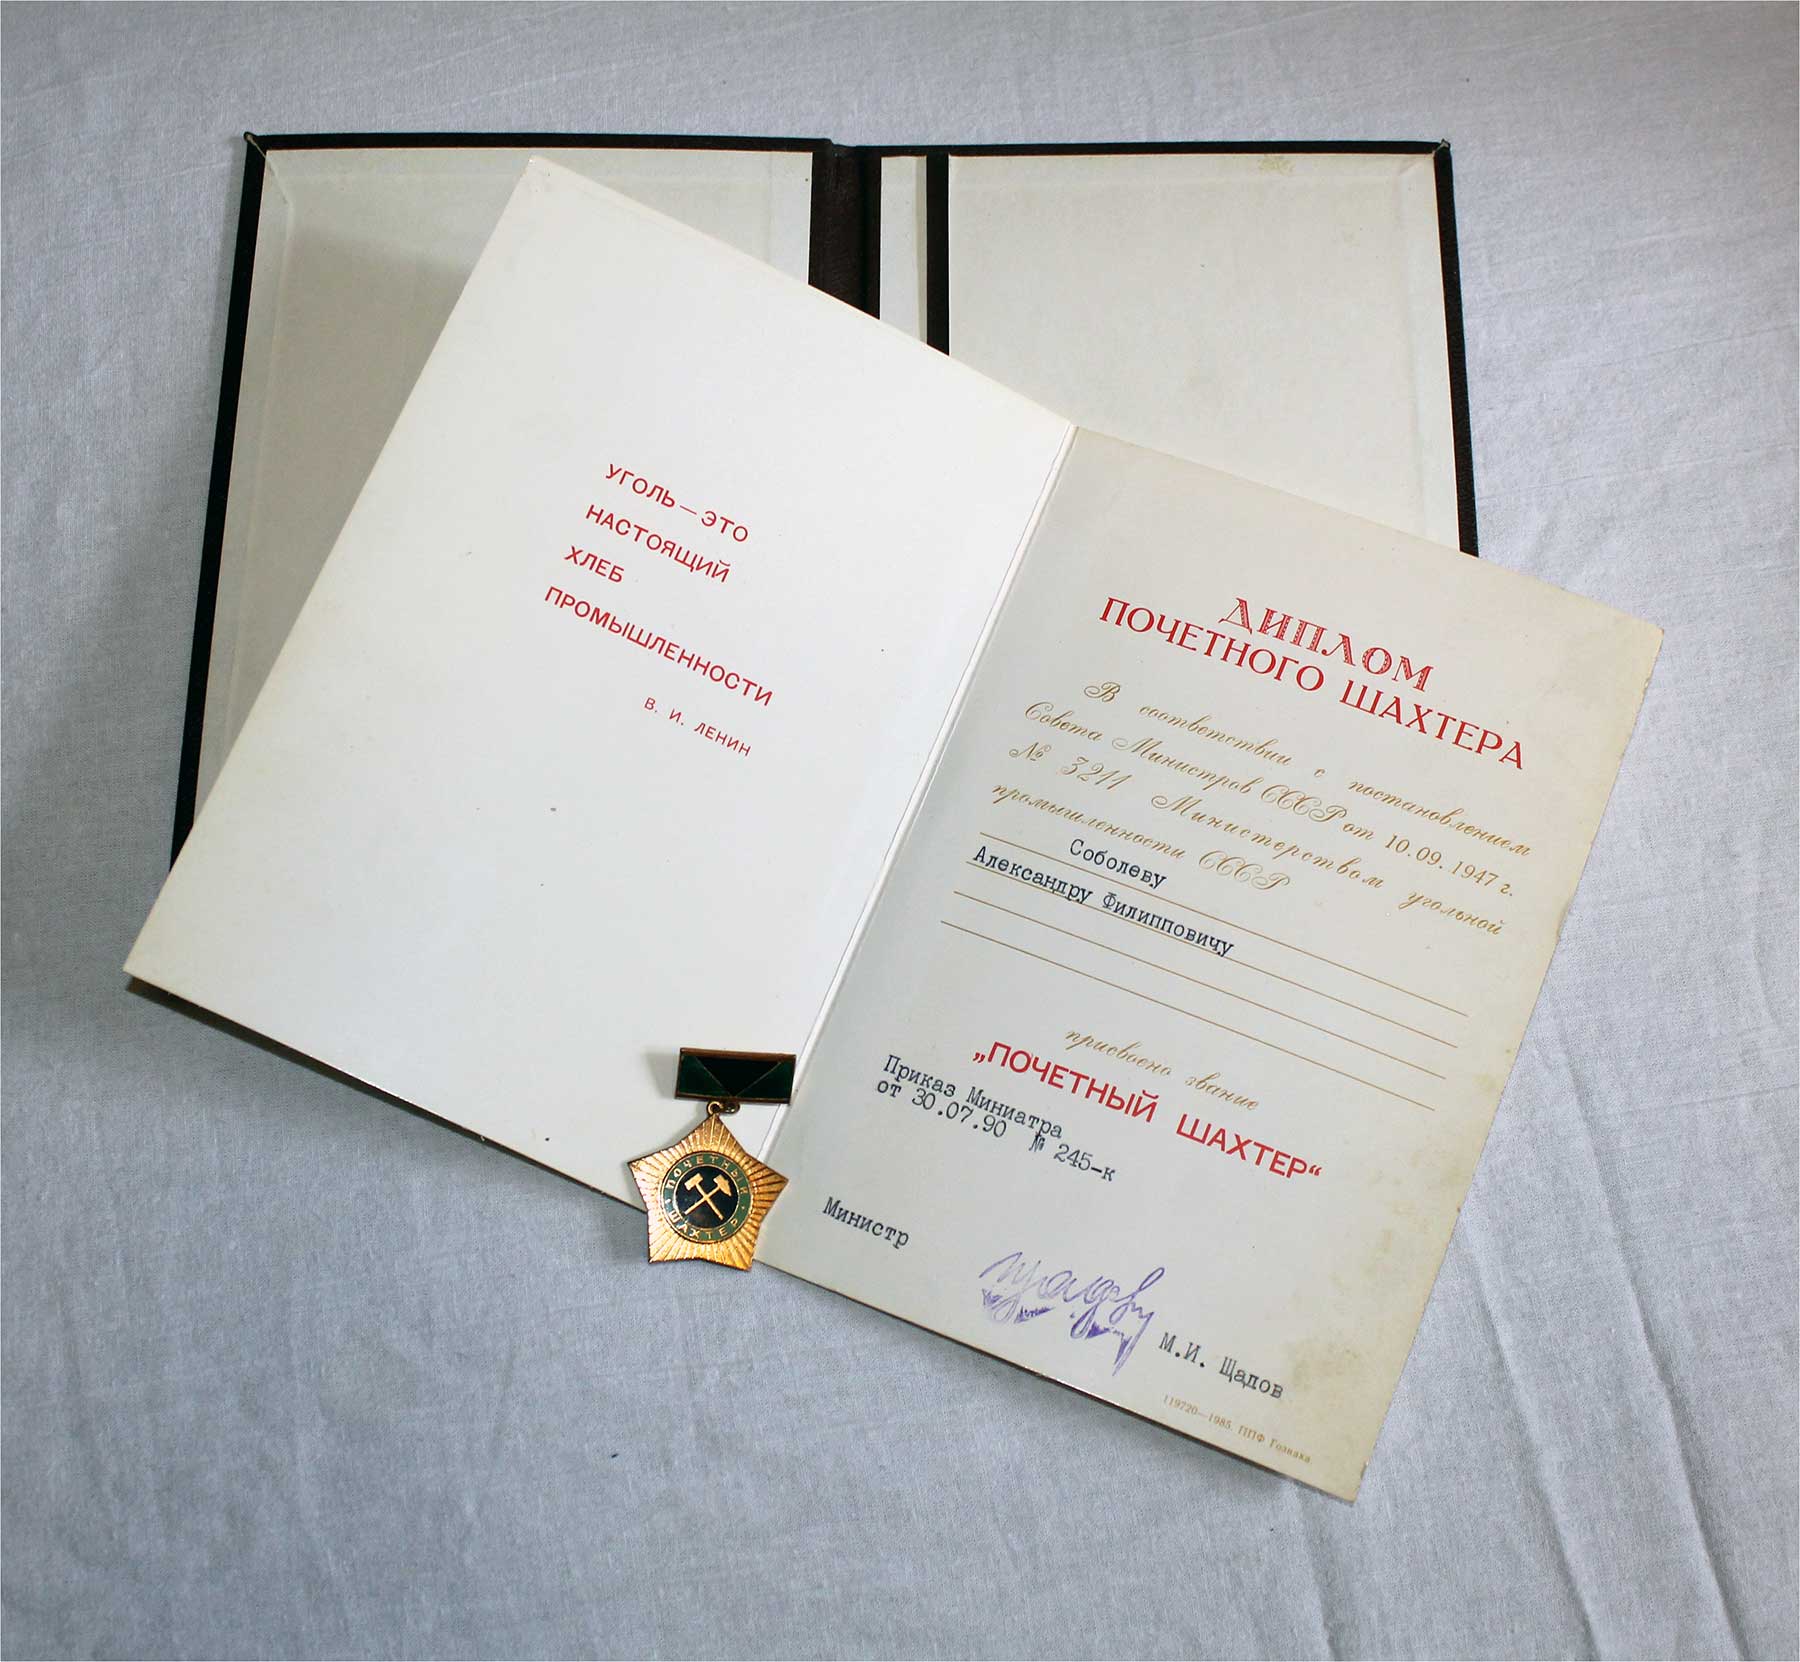 УГОЛЬ — ЭТО
НАСТОЯЩИЙ
ХЛЕБ
ПРОМЫШЛЕННОСТИ
В. И. ЛЕНИН
ДИПЛОМ
ПОЧЕТНОГО ШАХТЕРА
В соответствии с постановлением
Совета Министров СССР от 10.09.1947 г.
№ 3211 Министерством угольной
промышленности СССР
Соболеву
Александру Филипповичу
присвоено звание
„ПОЧЕТНЫЙ ШАХТЕР“
Приказ Миниатра
от 30.07.90 № 245-к
Министр
М.И. Щадов
119720—1985. ППФ Гознака
ПОЧЕТНЫЙ
ШАХТЕР